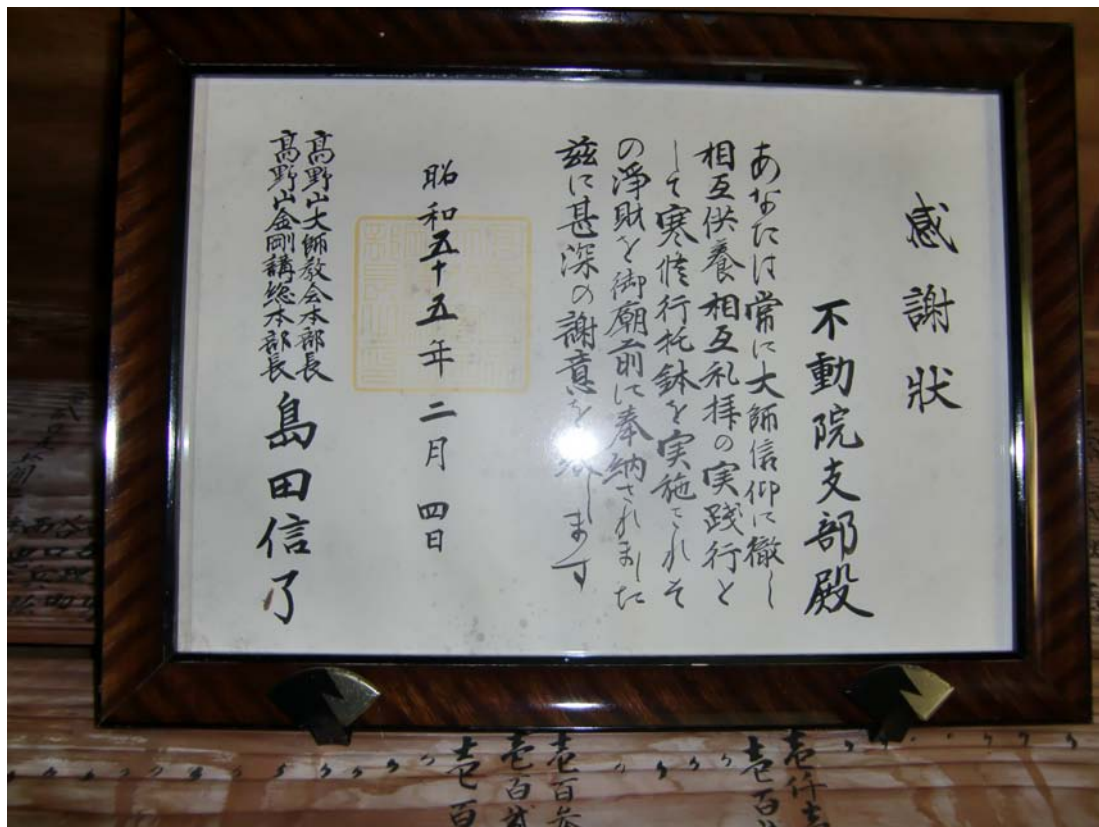 感謝状
不動院支部殿
あなたは常に大師信仰に徹し
相互供養相互礼拝の実践行と
して寒修行托鉢を実施されそ
の浄財を御廟前に奉納されました
茲に甚深の謝意を します
昭和五十五年二月四日
高野山大師教会本部長
高野山金剛講総本部長
島田信了
壱仟
壱百
壱百
壱百弐
壱百